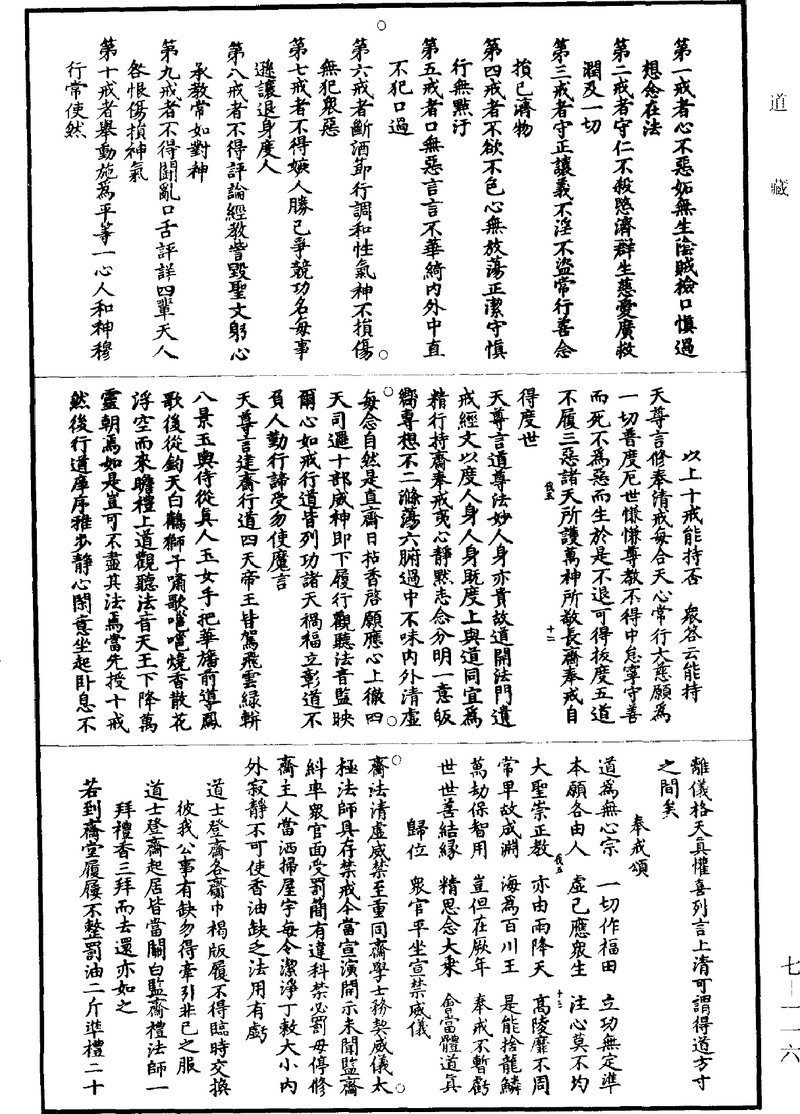 道藏
第一戒者心不惡妬無生陰賊檢口慎過
想念在法
第二戒者守仁不殺愍濟群生慈愛廣救
潤及一切
第三戒者守正讓義不淫不盜常行善念
損己濟物
第四戒者不欲不色心無放蕩正潔守慎
行無點汙
第五戒者口無惡言言不華綺內外中直
不犯口過
第六戒者斷酒節行調和性氣神不損傷
無犯眾惡
第七戒者不得嫉人勝己爭競功名每事
遜讓退身度人
第八戒者不得評論經教訾毀聖文躬心
承教常如對神
第九戒者不得鬭亂口舌評詳四輩天人
咎恨傷損神氣
第十戒者舉動施為平等一心人和神穆
行常使然
以上十戒能持否 眾答云能持
天尊言修奉清戒每合天心常行大慈願為
一切普度厄世慊慊尊教不得中怠寧守善
而死不為惡而生於是不退可得拔度五道
不履三惡諸天所護萬神所敬長齋奉戒自
得度世
天尊言道尊法妙人身亦貴故道開法門遺
戒經文以度人身人身既度上與道同宜為
精行持齋奉戒夷心靜默志念分明一意皈
嚮專想不二滌蕩六腑過中不味內外清虛
每念自然是直齋日拈香啓願應心上徹四
天司邏十部威神即下履行觀聽法音監映
爾心如戒行道皆列功諸天禍福立彰道不
負人勤行諦受勿使魔言
天尊言建齋行道四天帝王皆駕飛雲綠軿
八景玉輿侍從真人玉女手把華旛前導鳳
歌後從鈞天白鶴獅子嘯歌邕邕燒香散花
浮空而來瞻禮上道觀聽法音天王下降萬
靈朝焉如是豈可不盡其法焉當先授十戒
然後行道庠序雅步靜心閑意坐起臥息不
離儀格天真懽喜列言上清可謂得道方寸
之間矣
奉戒頌
道為無心宗 一切作福田 立功無定準
本願各由人 虛己應眾生 注心莫不均
大聖崇正教 亦由雨降天 高陵靡不周
常卑故成淵 海為百川王 是能捨龍鱗
萬劫保智用 豈但在厥年 奉戒不暫虧
世世善結緣 精思念大乘 會當體道真
歸位 眾官平坐宣禁威儀
齋法清虛威禁至重同齋學士務契威儀太
極法師具存禁戒今當宣演開示未聞監齋
糾率眾官面受罰簡有違科禁必罰毋停修
齋主人當洒掃屋宇每令潔淨丁敕大小內
外寂靜不可使香油缺乏法用有虧
道士登齋各齎巾褐版履不得臨時交換
彼我公事有缺勿得牽引非己之服
道士登齋起居皆當關白監齋禮法師一
拜禮香三拜而去還亦如之
若到齋堂履屨不整罰油二斤準禮二十
七－一一六